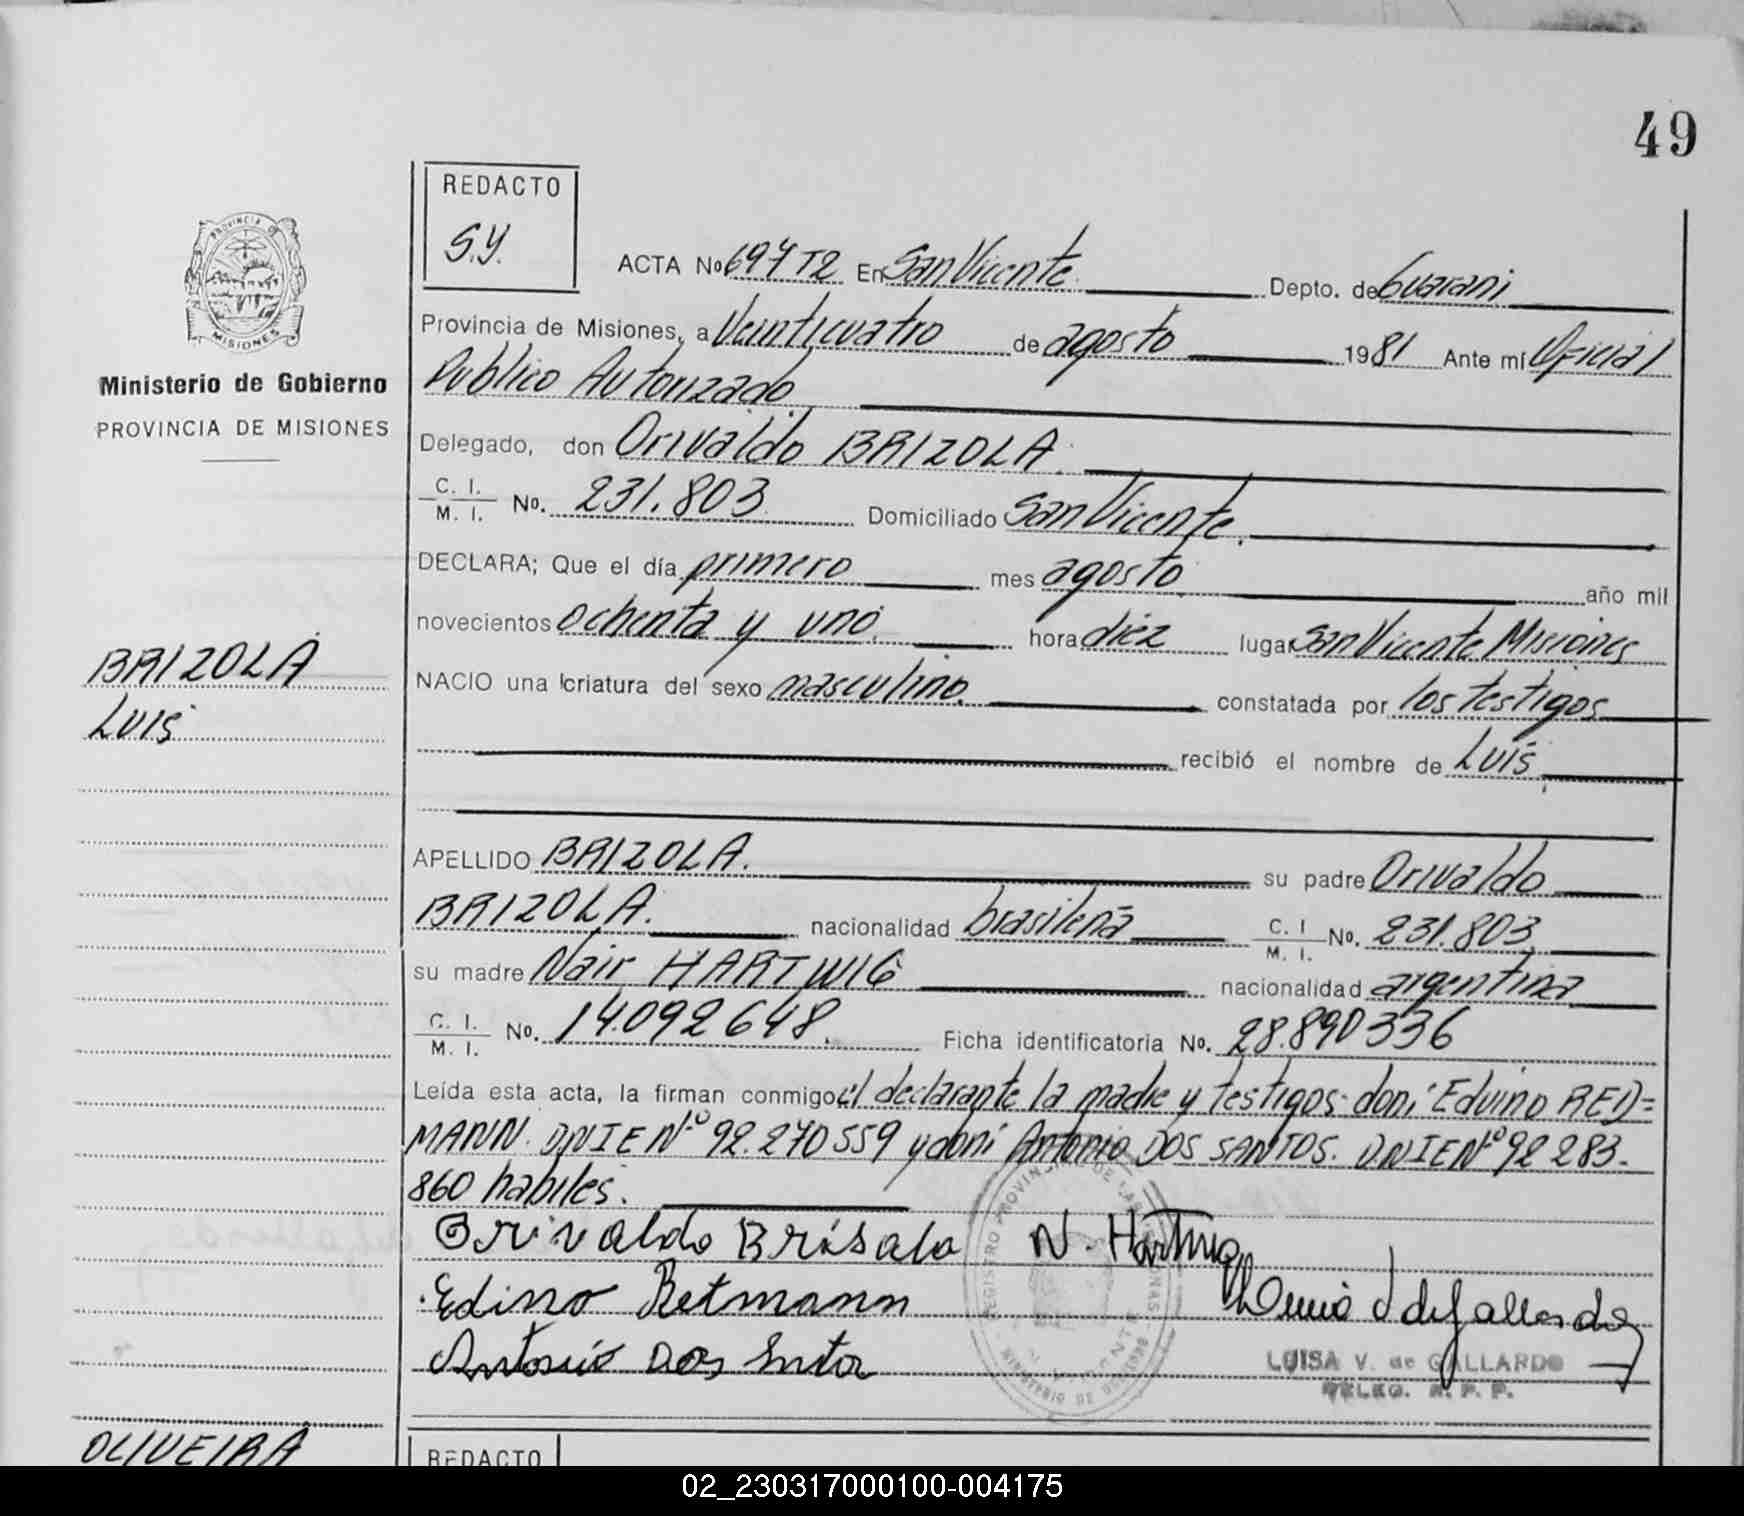 49
REDACTO
S.Y.
ACTA No 697 T2 En San Vicente Depto. de Guarani
PROVINCIA DE
MISIONES
Ministerio de Gobierno
PROVINCIA DE MISIONES
Provincia de Misiones, a Veinticuatro de agosto 1981 Ante mí Oficial
Publico Autorizado
Delegado, don Orivaldo BRIZOLA.
C. I. / M. I. No. 231.803 Domiciliado San Vicente.
DECLARA; Que el día primero mes agosto año mil
novecientos ochenta y uno. hora diez lugar San Vicente Misiones
BRIZOLA
LUIS
NACIO una criatura del sexo masculino. constatada por los testigos
recibió el nombre de Luis,
APELLIDO BRIZOLA. su padre Orivaldo
BRIZOLA. nacionalidad brasileña C. I / M. I. No. 231.803
su madre Nair HARTWIG nacionalidad argentina
C. I. / M. I. No. 14.092648. Ficha identificatoria No. 28.890336
Leída esta acta, la firman conmigo el declarante la madre y testigos: don: Eduino REID=
MANN. DNIE Nº 92.270559 y don: Antonio DOS SANTOS. DNIE Nº 92 283.
860 habiles.
Orivaldo Brisola N. Hartwig
Edino Retmann
Antonio Dos
LUISA V. de GALLARDO
DELEG. R. P. P.
OLIVEIRA
REDACTO
02_230317000100-004175